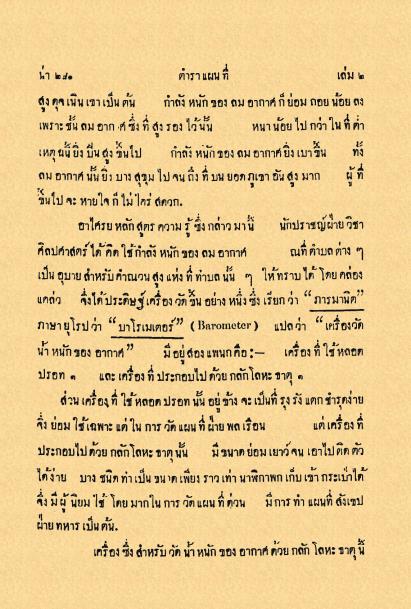 น่า ๒๘๑ ตำราแผนที่ เล่ม ๒
สูง ดุจ เนิน เขา เป็น ต้น กำลัง หนัก ของ ลม อากาศ ก็ ย่อม ถอย น้อย ลง
เพราะ ชั้น ลม อากาศ ซึ่ง ที่ สูง รอง ไว้ นั้น หนา น้อย ไป กว่า ใน ที่ ต่ำ
เหตุ ฉนี้ ยิ่ง ปีน สูง ขึ้น ไป กำลัง หนัก ของ อากาศ ยิ่ง เบา ขึ้น ทั้ง
ลม อากาศ นั้น ยิ่ง บาง สุขุม ไป จน ถึง ที่ บน ยอด ภูเขา อัน สูง มาก ผู้ ที่
ขึ้น ไป จะ หายใจ ก็ ไม่ ใคร่ สดวก.
อาไศรย หลัก สูตร ความ รู้ ซึ่ง กล่าว มา นี้ นักปราชญ์ ฝ่าย วิชา
ศิลปศาสตร์ ได้ คิด ใช้ กำลัง หนัก ของ ลม อากาศ ณที่ ตำบล ต่าง ๆ
เป็น อุบาย สำหรับ คำณวน สูง แห่ง ที่ ทำบล นั้น ๆ ให้ ทราบ ได้ โดย คล่อง
แคล่ว จึง ได้ ประดิษฐ์ เครื่อง วัด ขึ้น อย่าง หนึ่ง ซึ่ง เรียก ว่า “ภารมานิต”
ภาษา ยุโรป ว่า “บาโรเมเตอร์” (Barometer) แปล ว่า “เครื่องวัด
น้ำ หนัก ของ อากาศ” มี อยู่ สอง แพนก คือ :— เครื่อง ที่ ใช้ หลอด
ปรอท ๑ และ เครื่อง ที่ ประกอบ ไป ด้วย กลัก โลหะ ธาตุ ๑
ส่วน เครื่อง ที่ ใช้ หลอด ปรอท นั้น อยู่ ข้าง จะ เป็น ที่ รุง รัง แตก ชำรุด ง่าย
จึ่ง ย่อม ใช้ เฉพาะ แต่ ใน การ วัด แผน ที่ ฝ่าย พล เรือน แต่ เครื่อง ที่
ประกอบ ไป ด้วย กลัก โลหะ ธาตุ นั้น มี ขนาด ย่อม เยาว์ จน เอา ไป ติด ตัว
ได้ ง่าย บาง ชนิด ทำ เป็น ขนาด เพียง ราว เท่า นาฬิกา พก เก็บ เข้า กระเป๋า ได้
จึ่ง มี ผู้ นิยม ใช้ โดย มาก ใน การ วัด แผน ที่ ด่วน มี การ ทำ แผนที่ สังเขป
ฝ่าย ทหาร เป็น ต้น.
เครื่อง ซึ่ง สำหรับ วัด น้ำ หนัก ของ อากาศ ด้วย กลัก โลหะ ธาตุ นี้